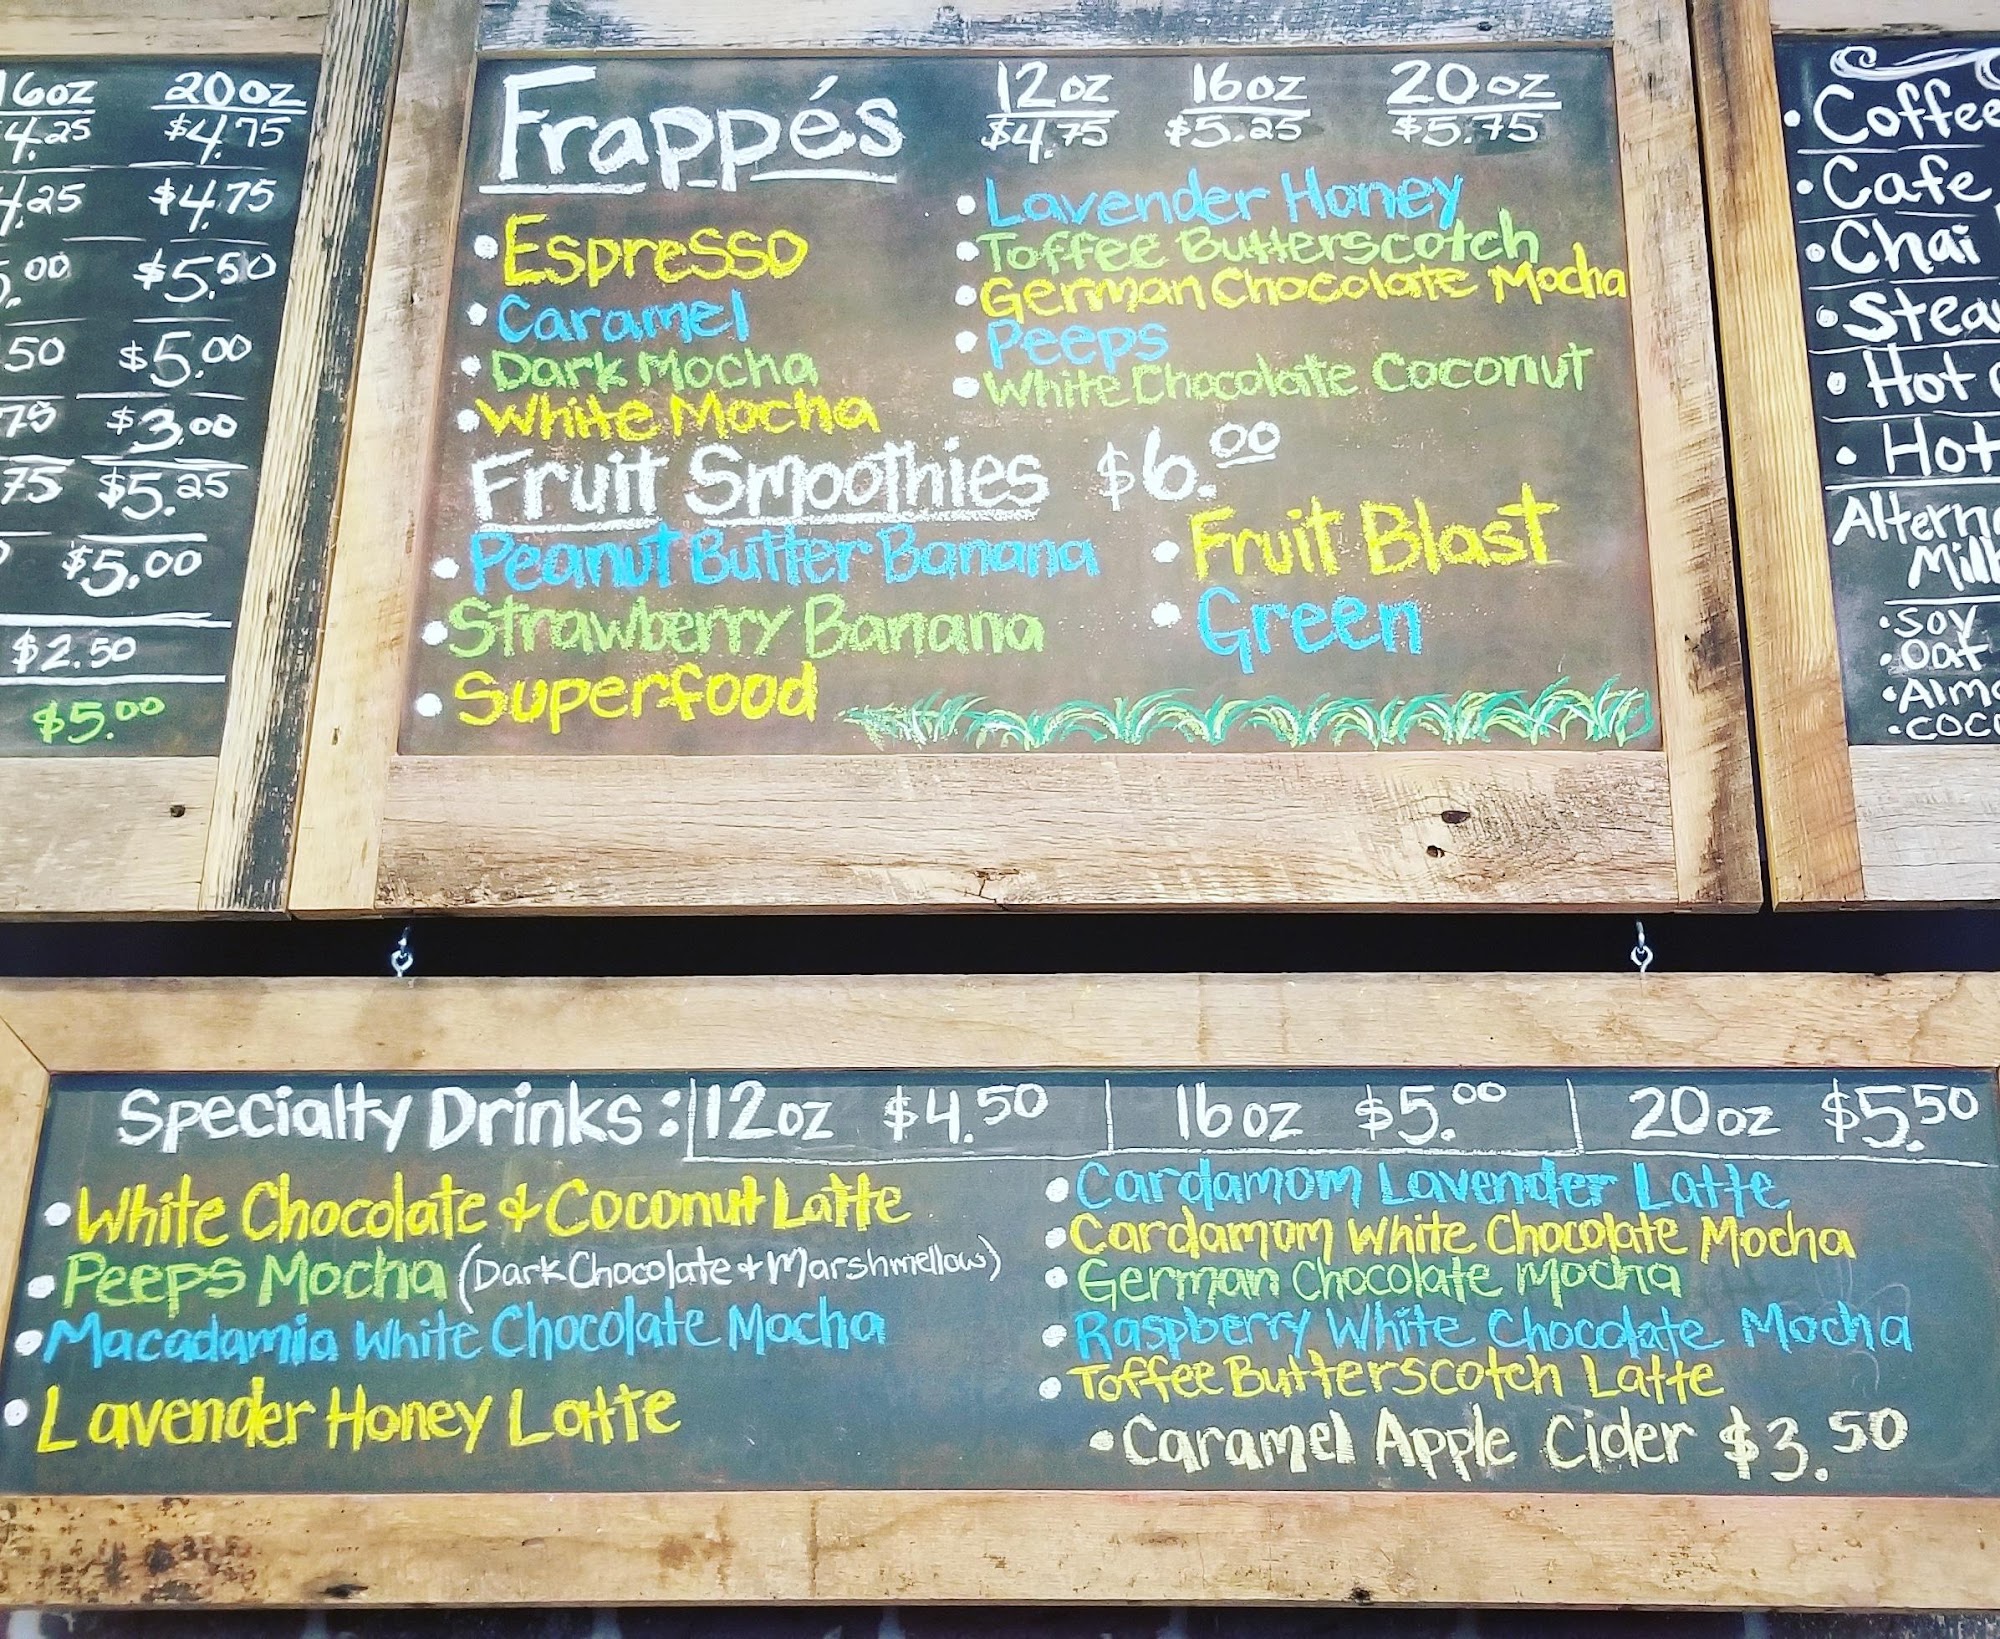 16oz 20oz
4.25 $4.75
4.25 $4.75
.00 $5.50
.50 $5.00
75 $3.00
75 $5.25
$5.00
$2.50
$5.00
Frappés
12oz 16oz 20oz
$4.75 $5.25 $5.75
• Espresso
• Caramel
• Dark Mocha
• White Mocha
• Lavender Honey
• Toffee Butterscotch
• German Chocolate Mocha
• Peeps
• White Chocolate Coconut
Fruit Smoothies $6.00
• Peanut Butter Banana
• Strawberry Banana
• Superfood
• Fruit Blast
• Green
• Coffee
• Cafe
• Chai
• Hot
• Hot
• Soy
• Oat
Specialty Drinks: 12oz $4.50 16oz $5.00 20oz $5.50
• White Chocolate & Coconut Latte
• Peeps Mocha (Dark Chocolate + Marshmellow)
• Macadamia White Chocolate Mocha
• Lavender Honey Latte
• Cardamom Lavender Latte
• Cardamom White Chocolate Mocha
• German Chocolate Mocha
• Raspberry White Chocolate Mocha
• Toffee Butterscotch Latte
• Caramel Apple Cider $3.50